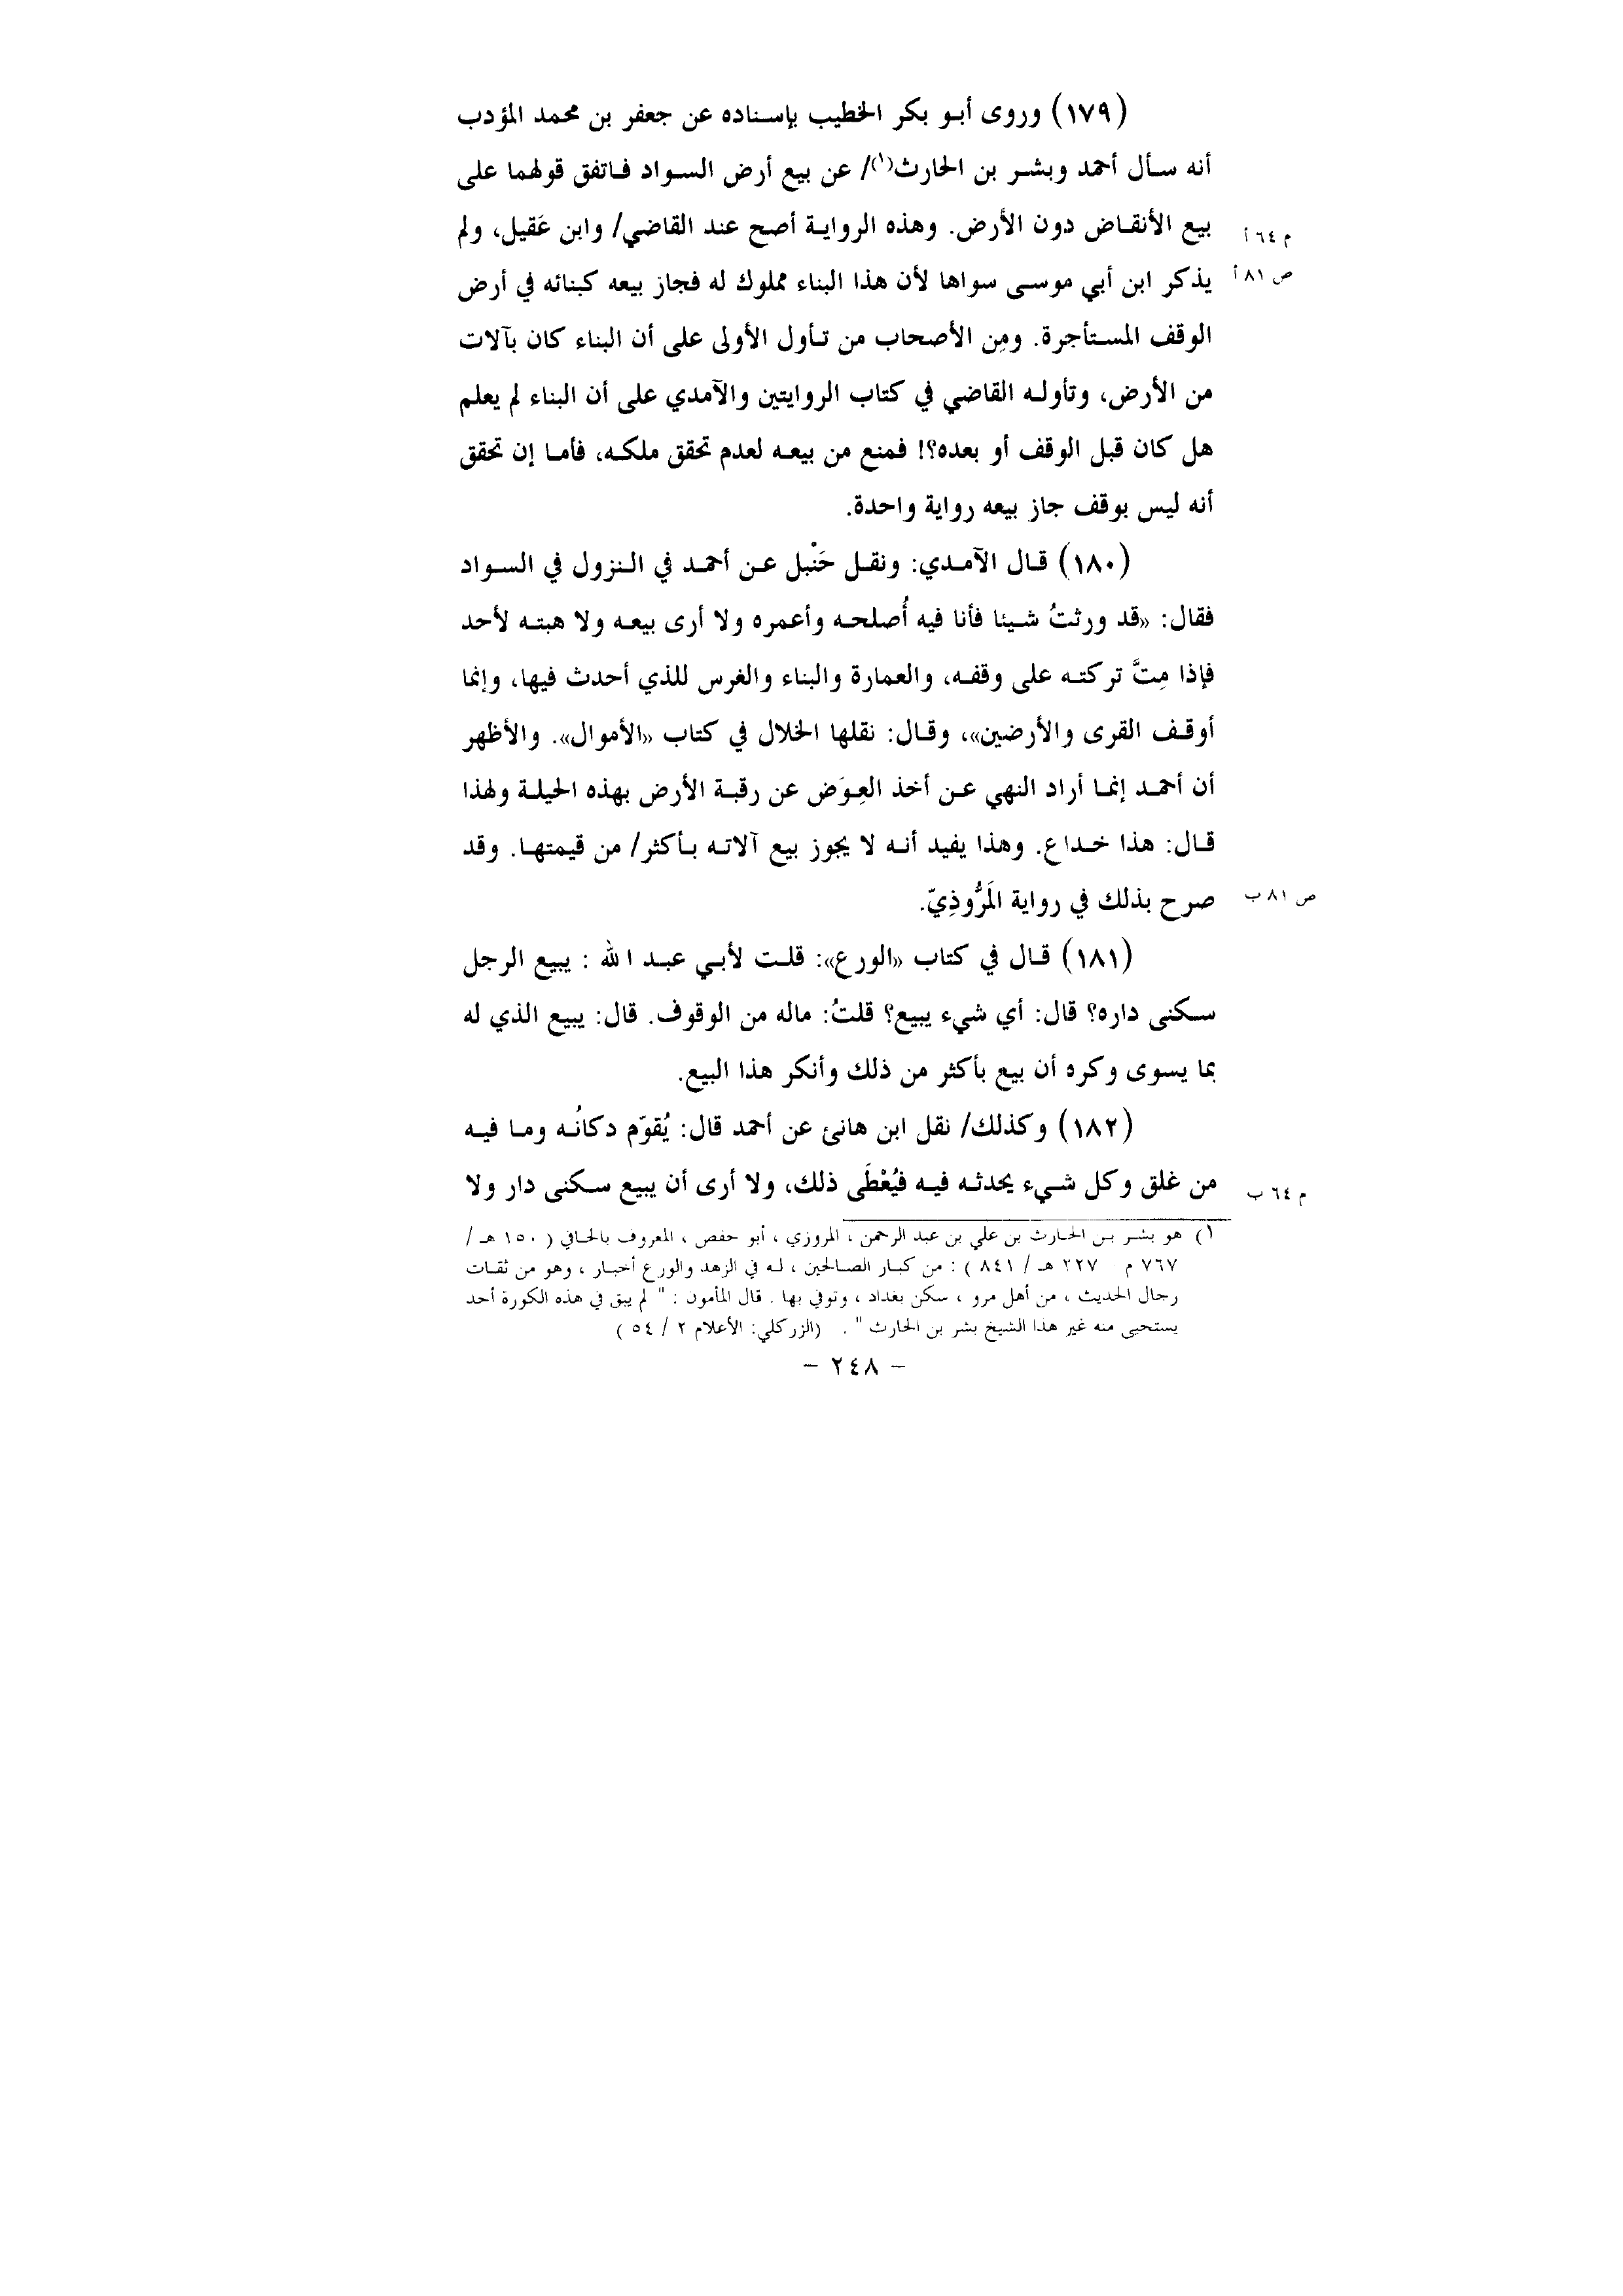 (١٧٩) وروى أبو بكر الخطيب بإسناده عن جعفر بن محمد المؤدب
أنه سأل أحمد وبشر بن الحارث(١)/ عن بيع أرض السواد فاتفق قولهما على
بيع الأنقاض دون الأرض. وهذه الرواية أصح عند القاضي/ وابن عَقيل، ولم
م ٦٤ أ
يذكر ابن أبي موسى سواها لأن هذا البناء مملوك له فجاز بيعه كبنائه في أرض
ص ٨١ أ
الوقف المستأجرة. ومِن الأصحاب من تأول الأولى على أن البناء كان بآلات
من الأرض، وتأوله القاضي في كتاب الروايتين والآمدي على أن البناء لم يعلم
هل كان قبل الوقف أو بعده؟! فمنع من بيعه لعدم تحقق ملكه، فأما إن تحقق
أنه ليس بوقف جاز بيعه رواية واحدة.
(١٨٠) قال الآمدي: ونقل حَنْبل عن أحمد في النزول في السواد
فقال: «قد ورثتُ شيئا فأنا فيه أُصلحه وأعمره ولا أرى بيعه ولا هبته لأحد
فإذا مِتَّ تركته على وقفه، والعمارة والبناء والغرس للذي أحدث فيها، وإنما
أوقف القرى والأرضين»، وقال: نقلها الخلال في كتاب «الأموال». والأظهر
أن أحمد إنما أراد النهي عن أخذ العِوَض عن رقبة الأرض بهذه الحيلة ولهذا
قال: هذا خداع. وهذا يفيد أنه لا يجوز بيع آلاته بأكثر/ من قيمتها. وقد
صرح بذلك في رواية المَرُّوذِيّ.
ص ٨١ ب
(١٨١) قال في كتاب «الورع»: قلت لأبي عبد الله : يبيع الرجل
سكنى داره؟ قال: أي شيء يبيع؟ قلتُ: ماله من الوقوف. قال: يبيع الذي له
بما يسوى وكره أن بيع بأكثر من ذلك وأنكر هذا البيع.
(١٨٢) وكذلك/ نقل ابن هانئ عن أحمد قال: يُقوّم دكانُه وما فيه
من غلق وكل شيء يحدثه فيه فيُعْطَى ذلك، ولا أرى أن يبيع سكنى دار ولا
م ٦٤ ب
١) هو بشر بن الحارث بن علي بن عبد الرحمن ، المروزي ، أبو حفص ، المعروف بالحافي ( ١٥٠ هـ /
٧٦٧ م ٢٢٧ هـ / ٨٤١ ) : من كبار الصالحين ، له في الزهد والورع أخبار ، وهو من ثقات
رجال الحديث ، من أهل مرو ، سكن بغداد ، وتوفي بها . قال المأمون : " لم يبق في هذه الكورة أحد
يستحيى منه غير هذا الشيخ بشر بن الحارث " . (الزركلي: الأعلام ٢ / ٥٤ )
- ٢٤٨ -